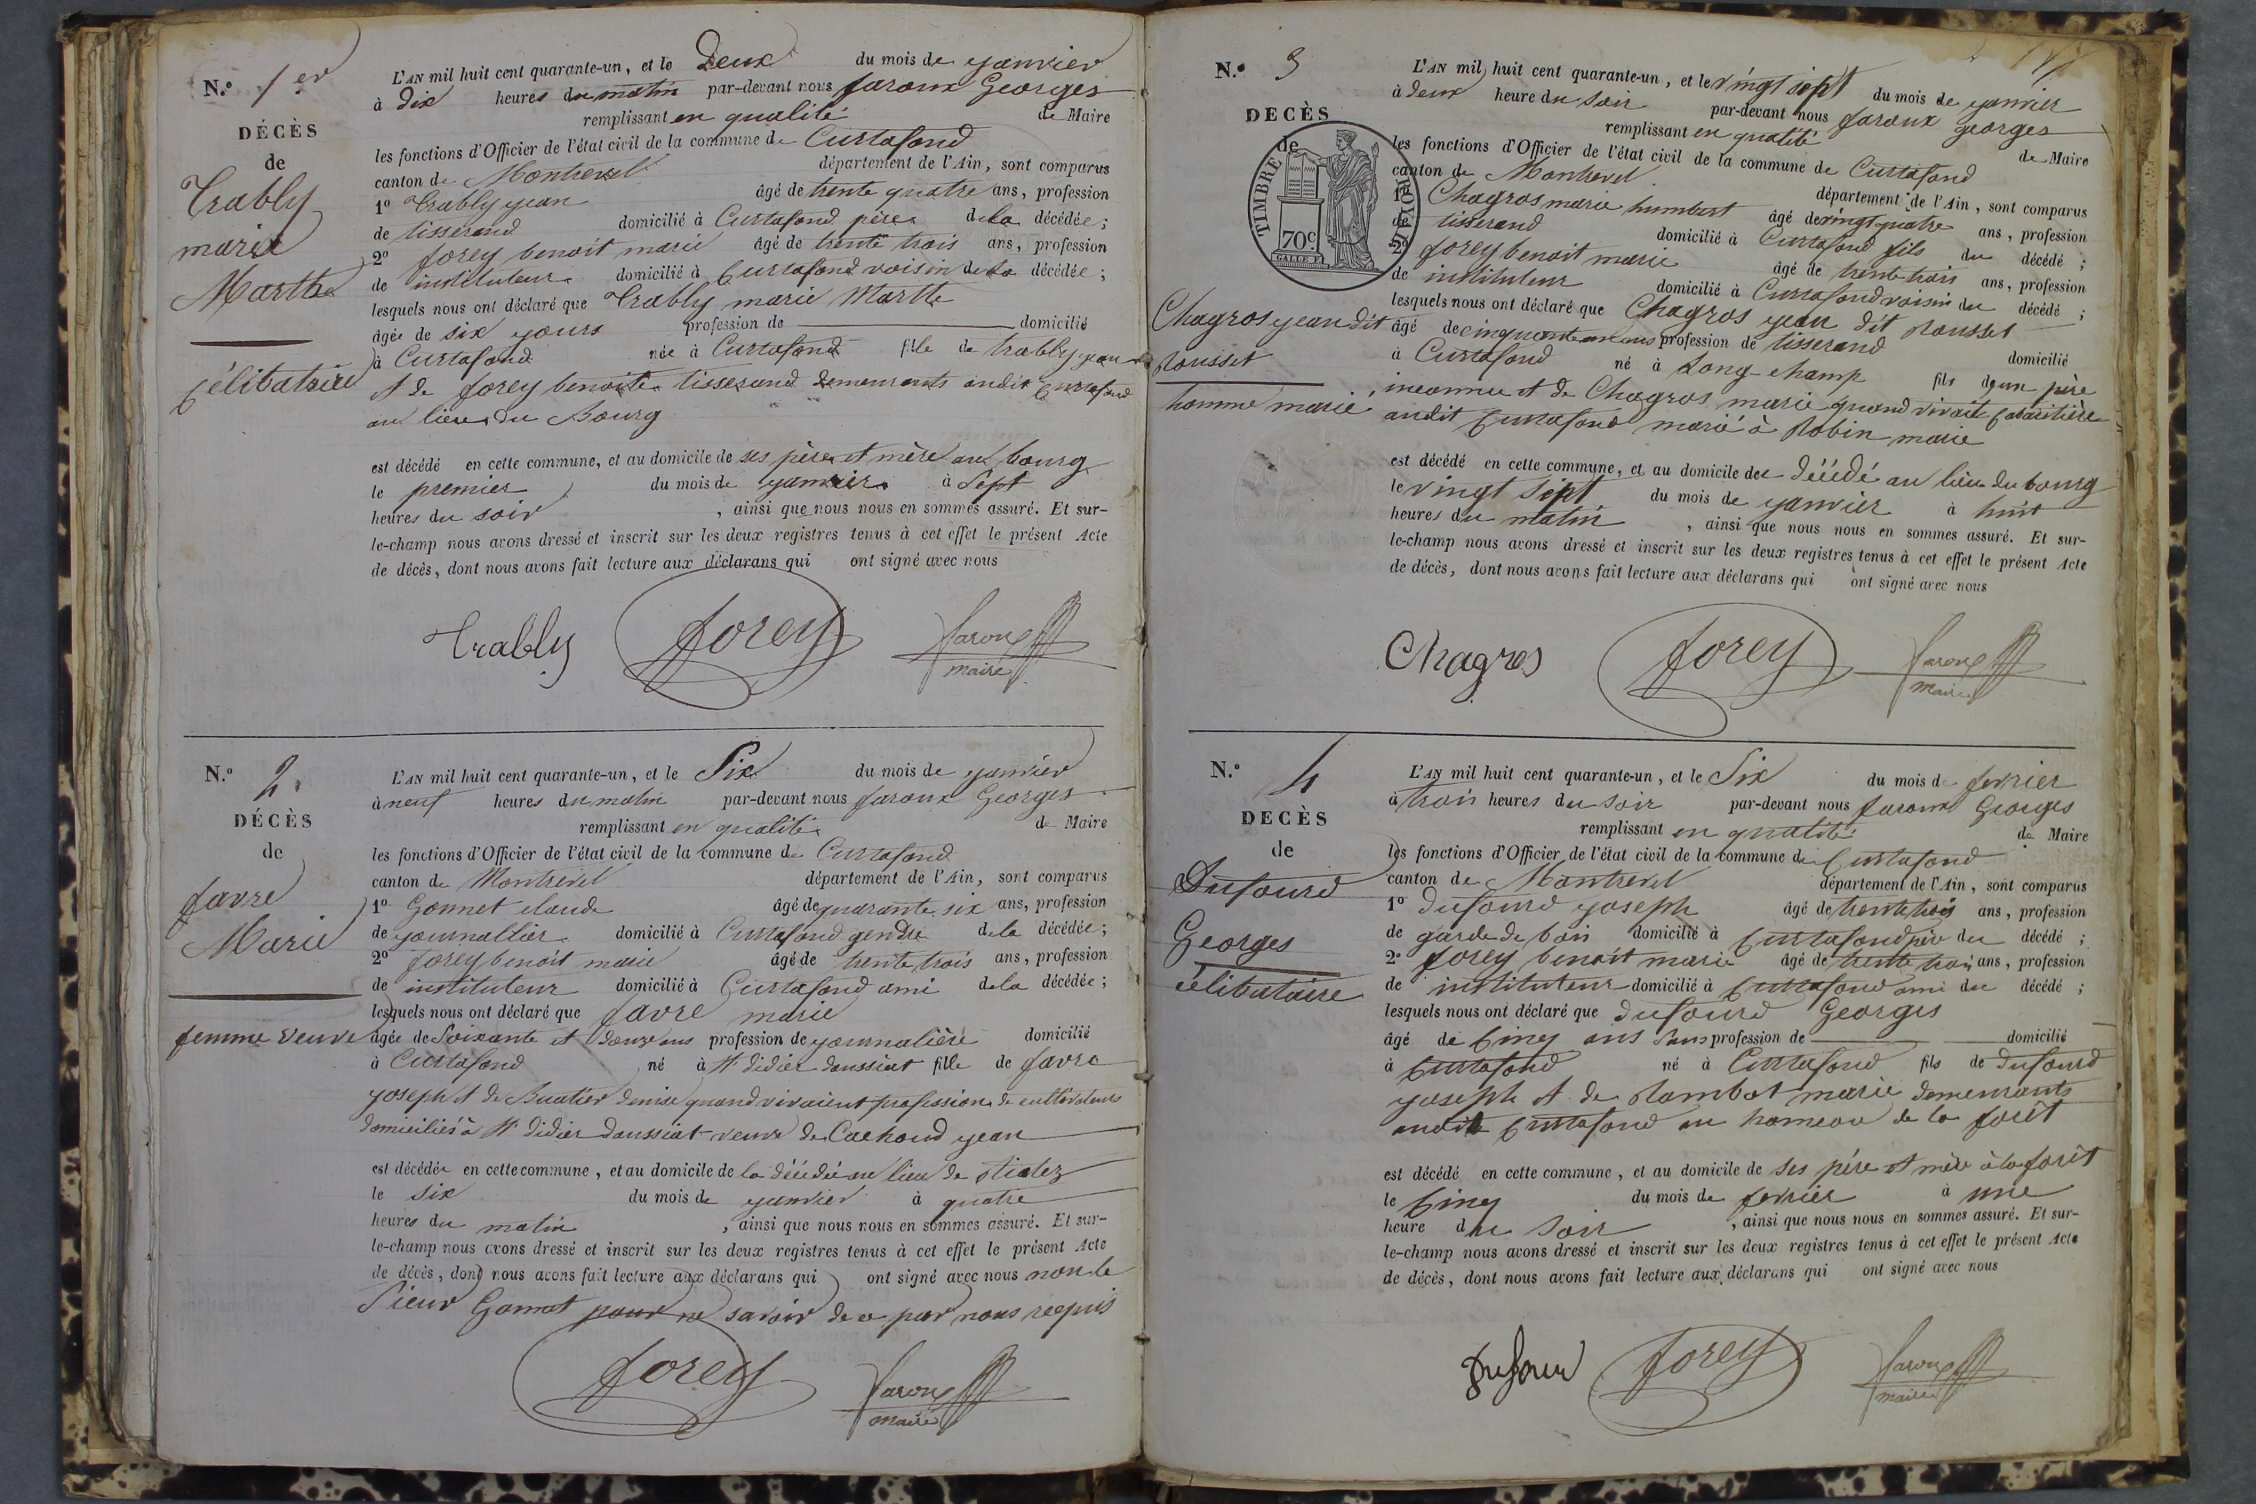 N.° 1er
DÉCÈS
de
Trably
marie
Marthe
célibataire
L'AN mil huit cent quarante-un, et le Deux du mois de janvier
à dix heures du matin par-devant nous faroux Georges
remplissant en qualité de Maire
les fonctions d'Officier de l'état civil de la commune de Curtafond
canton de Montrevel département de l'Ain, sont comparus
1° Trably jean âgé de trente quatre ans, profession
de tisserand domicilié à Curtafond père de la décédée;
2° forey benoit marie âgé de trente trois ans, profession
de instituteur domicilié à Curtafond voisin de la décédée;
lesquels nous ont déclaré que Trably marie Marthe
âgée de six jours profession de domicilié
à Curtafond née à Curtafond fille de trably jean
et de forey benoite tisserand demeurants audit Curtafond
au lieu du Bourg
est décédé en cette commune, et au domicile de ses père et mère au bourg
le premier du mois de janvier à Sept
heures du soir, ainsi que nous nous en sommes assuré. Et sur-
le-champ nous avons dressé et inscrit sur les deux registres tenus à cet effet le présent Acte
de décès, dont nous avons fait lecture aux déclarans qui ont signé avec nous
Trably forey faroux
maire
N.° 2.
DÉCÈS
de
favre
Marie
femme veuve
L'AN mil huit cent quarante-un, et le Six du mois de janvier
à neuf heures du matin par-devant nous faroux Georges
remplissant en qualité de Maire
les fonctions d'Officier de l'état civil de la commune de Curtafond
canton de Montrevel département de l'Ain, sont comparus
1° Gonnet claude âgé de quarante six ans, profession
de journallier domicilié à Curtafond gendre de la décédée;
2° forey benoit marie âgé de trente trois ans, profession
de instituteur domicilié à Curtafond ami de la décédée;
lesquels nous ont déclaré que favre marie
âgée de Soixante et Douze ans profession de journalière domicilié
à Curtafond né à St didier daussiat fille de favre
joseph et de Buatier denise quand vivaient profession de cultivateurs
domiciliés à St didier daussiat veuve de Cachoud jean
est décédée en cette commune, et au domicile de la décédé au lieu de
le six du mois de janvier à quatre
heures du matin, ainsi que nous nous en sommes assuré. Et sur-
le-champ nous avons dressé et inscrit sur les deux registres tenus à cet effet le présent Acte
de décès, dont nous avons fait lecture aux déclarans qui ont signé avec nous non le
Sieur Gonnet pour ne savoir de ce par nous requis
forey faroux
maire
N.° 3
DECÈS
de
TIMBRE ROYAL
70c.
Chagros jean dit
Rousset
homme marié
L'AN mil huit cent quarante-un, et le vingt sept du mois de janvier
à deux heure du soir par-devant nous faroux georges
remplissant en qualité de Maire
les fonctions d'Officier de l'état civil de la commune de Curtafond
canton de Montrevel département de l'Ain, sont comparus
1° Chagros marie humbert âgé de vingt quatre ans, profession
de tisserand domicilié à Curtafond fils du décédé;
2° forey benoit marie âgé de trente trois ans, profession
de instituteur domicilié à Curtafond voisin du décédé;
lesquels nous ont déclaré que Chagros jean dit Rousset
âgé de cinquante un ans profession de tisserand domicilié
à Curtafond né à Long-champ fils d'un père
inconnu et de Chagros marie quand vivait
audit Curtafond marié à Robin marie
est décédé en cette commune, et au domicile de décédé au lieu du bourg
le vingt sept du mois de janvier à huit
heures du matin, ainsi que nous nous en sommes assuré. Et sur-
le-champ nous avons dressé et inscrit sur les deux registres tenus à cet effet le présent Acte
de décès, dont nous avons fait lecture aux déclarans qui ont signé avec nous
Chagros forey faroux
maire
N.° 4
DECÈS
de
Dufourd
Georges
célibataire
L'AN mil huit cent quarante-un, et le Six du mois de fevrier
à trois heures du soir par-devant nous faroux Georges
remplissant en qualité de Maire
les fonctions d'Officier de l'état civil de la commune de Curtafond
canton de Montrevel département de l'Ain, sont comparus
1° dufourd joseph âgé de trente trois ans, profession
de garde de bois domicilié à Curtafond père du décédé;
2° forey benoit marie âgé de trente trois ans, profession
de instituteur domicilié à Curtafond ami du décédé;
lesquels nous ont déclaré que dufourd Georges
âgé de Cinq ans Sans profession de domicilié
à Curtafond né à Curtafond fils de dufourd
joseph et de Rambot marie demeurants
audit Curtafond au hameau de la forêt
est décédé en cette commune, et au domicile de ses père et mère à la forêt
le Cinq du mois de fevrier à une
heure du soir, ainsi que nous nous en sommes assuré. Et sur-
le-champ nous avons dressé et inscrit sur les deux registres tenus à cet effet le présent Acte
de décès, dont nous avons fait lecture aux déclarans qui ont signé avec nous
Dufour forey faroux
maire